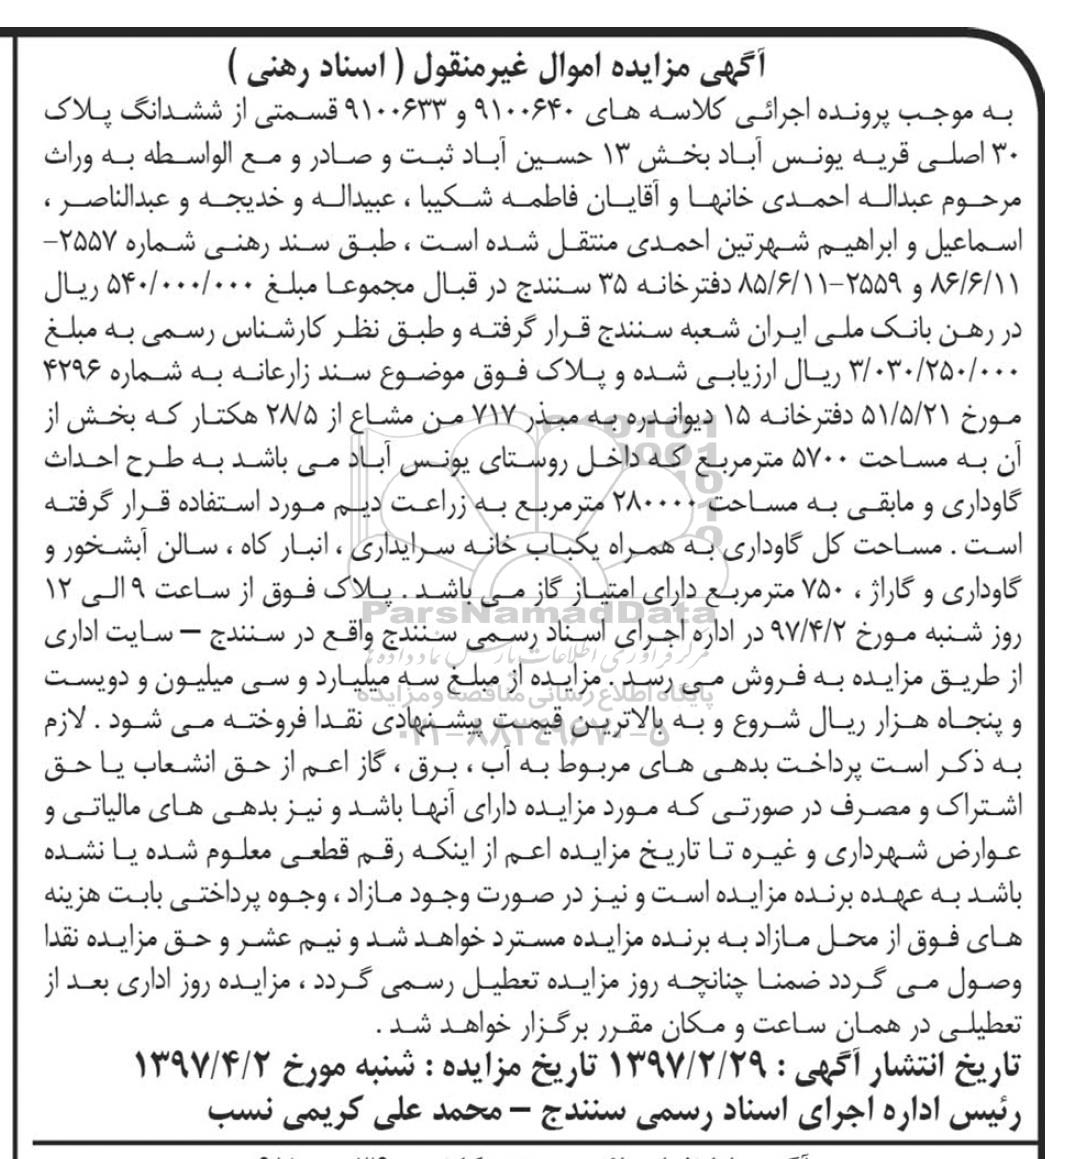 آگهی مزایده اموال غیرمنقول ( اسناد رهنی )
به موجب پرونده اجرائی کلاسه های ۹۱۰۰۶۴۰ و ۹۱۰۰۶۳۳ قسمتی از ششدانگ پلاک
۳۰ اصلی قریه یونس آباد بخش ۱۳ حسین آباد ثبت و صادر و مع الواسطه به وراث
مرحوم عبداله احمدی خانها و آقایان فاطمه شکیبا ، عبیداله و خدیجه و عبدالناصر ،
اسماعیل و ابراهیم شهرتین احمدی منتقل شده است ، طبق سند رهنی شماره ۲۵۵۷-
۸۶/۶/۱۱ و ۲۵۵۹-۸۵/۶/۱۱ دفترخانه ۳۵ سنندج در قبال مجموعا مبلغ ۵۴۰/۰۰۰/۰۰۰ ریال
در رهن بانک ملی ایران شعبه سنندج قرار گرفته و طبق نظر کارشناس رسمی به مبلغ
۳/۰۳۰/۲۵۰/۰۰۰ ریال ارزیابی شده و پلاک فوق موضوع سند زارعانه به شماره ۴۲۹۶
مورخ ۵۱/۵/۲۱ دفترخانه ۱۵ دیواندره به مبذر ۷۱۷ من مشاع از ۲۸/۵ هکتار که بخش از
آن به مساحت ۵۷۰۰ مترمربع که داخل روستای یونس آباد می باشد به طرح احداث
گاوداری و مابقی به مساحت ۲۸۰۰۰۰ مترمربع به زراعت دیم مورد استفاده قرار گرفته
است . مساحت کل گاوداری به همراه یکباب خانه سرایداری ، انبار کاه ، سالن آبشخور و
گاوداری و گاراژ ، ۷۵۰ مترمربع دارای امتیاز گاز می باشد . پلاک فوق از ساعت ۹ الی ۱۲
ParsNamadData
روز شنبه مورخ ۹۷/۴/۲ در اداره اجرای اسناد رسمی سنندج واقع در سنندج – سایت اداری
مرکز فرآوری اطلاعات پارس نماد داده ها
از طریق مزایده به فروش می رسد . مزایده از مبلغ سه میلیارد و سی میلیون و دویست
پایگاه اطلاع رسانی مناقصه و مزایده
و پنجاه هزار ریال شروع و به بالاترین قیمت پیشنهادی نقدا فروخته می شود . لازم
۰۲۱-۸۸۳۴۹۶۷۰-۵
به ذکر است پرداخت بدهی های مربوط به آب ، برق ، گاز اعم از حق انشعاب یا حق
اشتراک و مصرف در صورتی که مورد مزایده دارای آنها باشد و نیز بدهی های مالیاتی و
عوارض شهرداری و غیره تا تاریخ مزایده اعم از اینکه رقم قطعی معلوم شده یا نشده
باشد به عهده برنده مزایده است و نیز در صورت وجود مازاد ، وجوه پرداختی بابت هزینه
های فوق از محل مازاد به برنده مزایده مسترد خواهد شد و نیم عشر و حق مزایده نقدا
وصول می گردد ضمنا چنانچه روز مزایده تعطیل رسمی گردد ، مزایده روز اداری بعد از
تعطیلی در همان ساعت و مکان مقرر برگزار خواهد شد .
تاریخ انتشار آگهی : ۱۳۹۷/۲/۲۹ تاریخ مزایده : شنبه مورخ ۱۳۹۷/۴/۲
رئیس اداره اجرای اسناد رسمی سنندج – محمد علی کریمی نسب